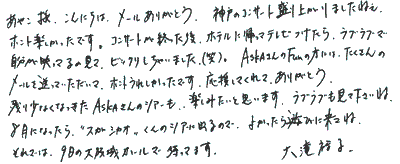 あやこ様、こんにちは、メールありがとう。神戸のコンサート盛り上がりましたねぇ
ホント楽しかったです。コンサートが終った後、ホテルに帰ってテレビつけたら、ラブラブで
自分が映ってるの見て、ビックリしちゃいました。(笑)。ASKAさんのFunの方には、たくさんの
メールを送っていただいて、ホントうれしかったです。応援してくれて、ありがとう。
残り少なくなってきたASKAさんのツアーも、楽しみたいと思います。ラブラブも見て下さいね。
8月になったら、"スガシカオ"くんのツアーに出るので、よかったら遊びに来てね。
それでは、9月の大阪城ホールで待ってます。